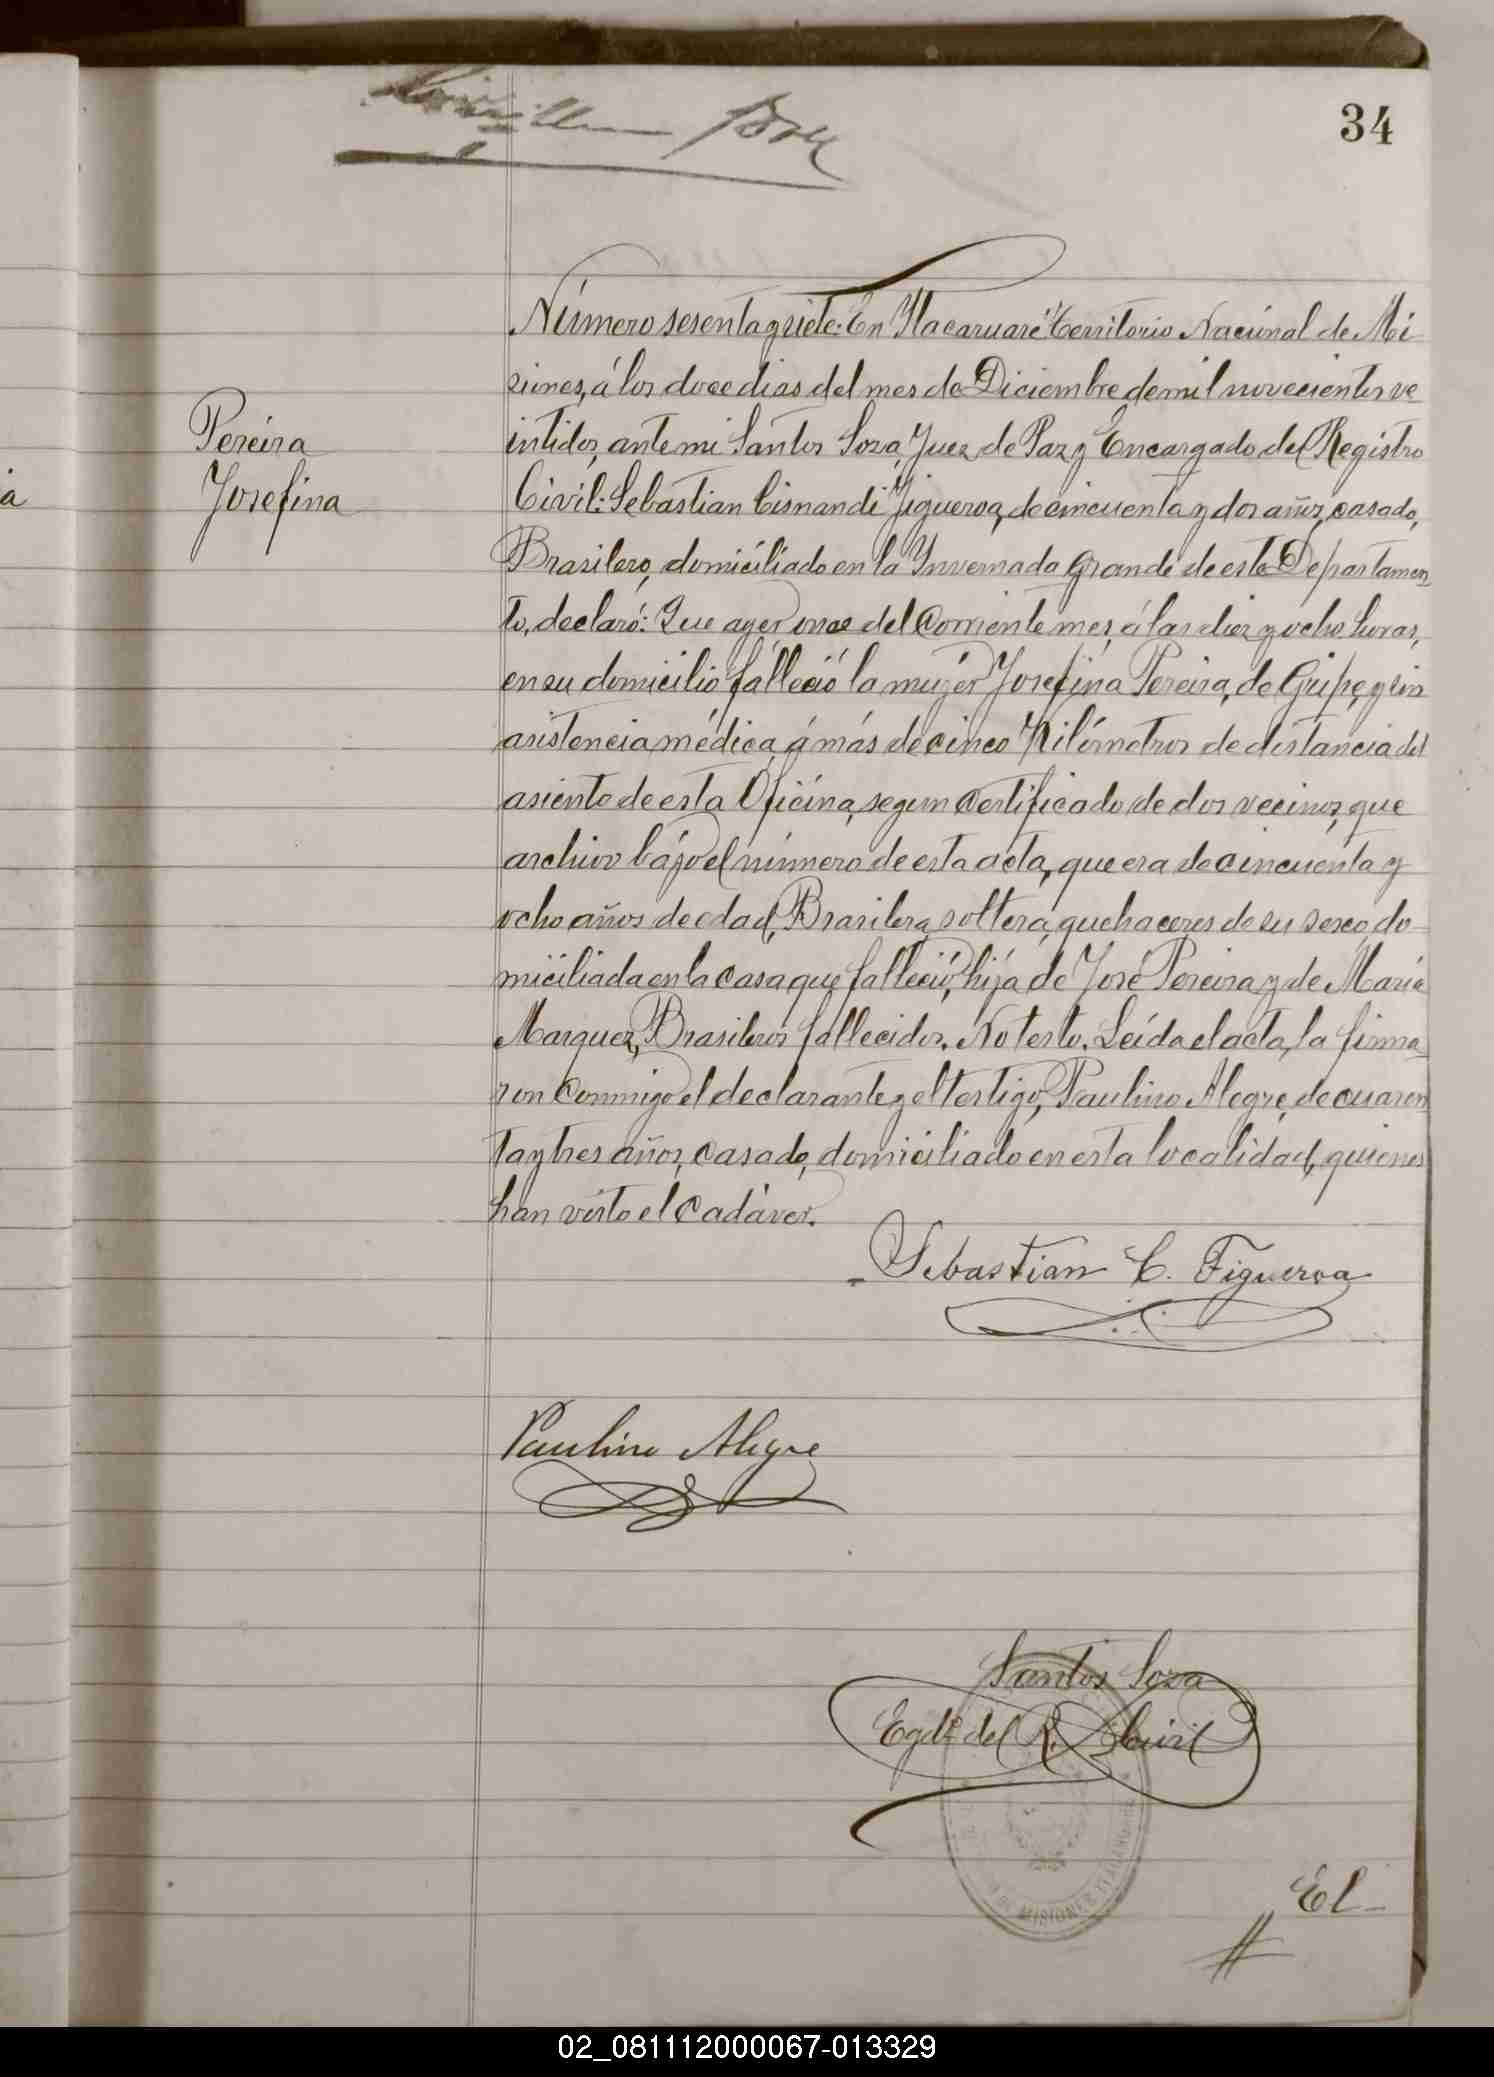 34
Número sesenta y siete: En Itacaruaré Territorio Nacional de Mi
siones, á los doce dias del mes de Diciembre de mil novecientos ve
intidos, ante mi Santos Soza, Juez de Paz y Encargado del Registro
Civil: Sebastian Cisnandi Figueroa, de cincuenta y dos años, casado,
Brasilero, domiciliado en la Invernada Grande de este Departamen
to, declaró: Que ayer once del corriente mes, á las diez y ocho horas,
en su domicilio falleció la mujer Josefina Pereira, de Gripe, y sin
asistencia médica, á más de cinco Kilómetros de distancia del
asiento de esta Oficina, segun certificado de dos vecinos, que
archivo bájo el número de esta acta, que era de cincuenta y
ocho años de edad, Brasilera, soltera, quehaceres de su sexo, do
miciliada en la casa que falleció, hija de José Pereira y de María
Marquez, Brasileros fallecidos. No testo. Leída el acta, la firma
ron conmigo el declarante y el testigo, Paulino Alegre, de cuaren
ta y tres años, casado, domiciliado en esta localidad, quienes
han visto el cadáver.
Pereira
Josefina
Sebastian C. Figueroa
Paulino Alegre
Santos Soza
Egdo del R. Civil
MISIONES
El
02_081112000067-013329